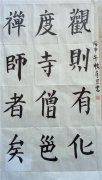 觀則有化
度寺僧邕
禪師者矣